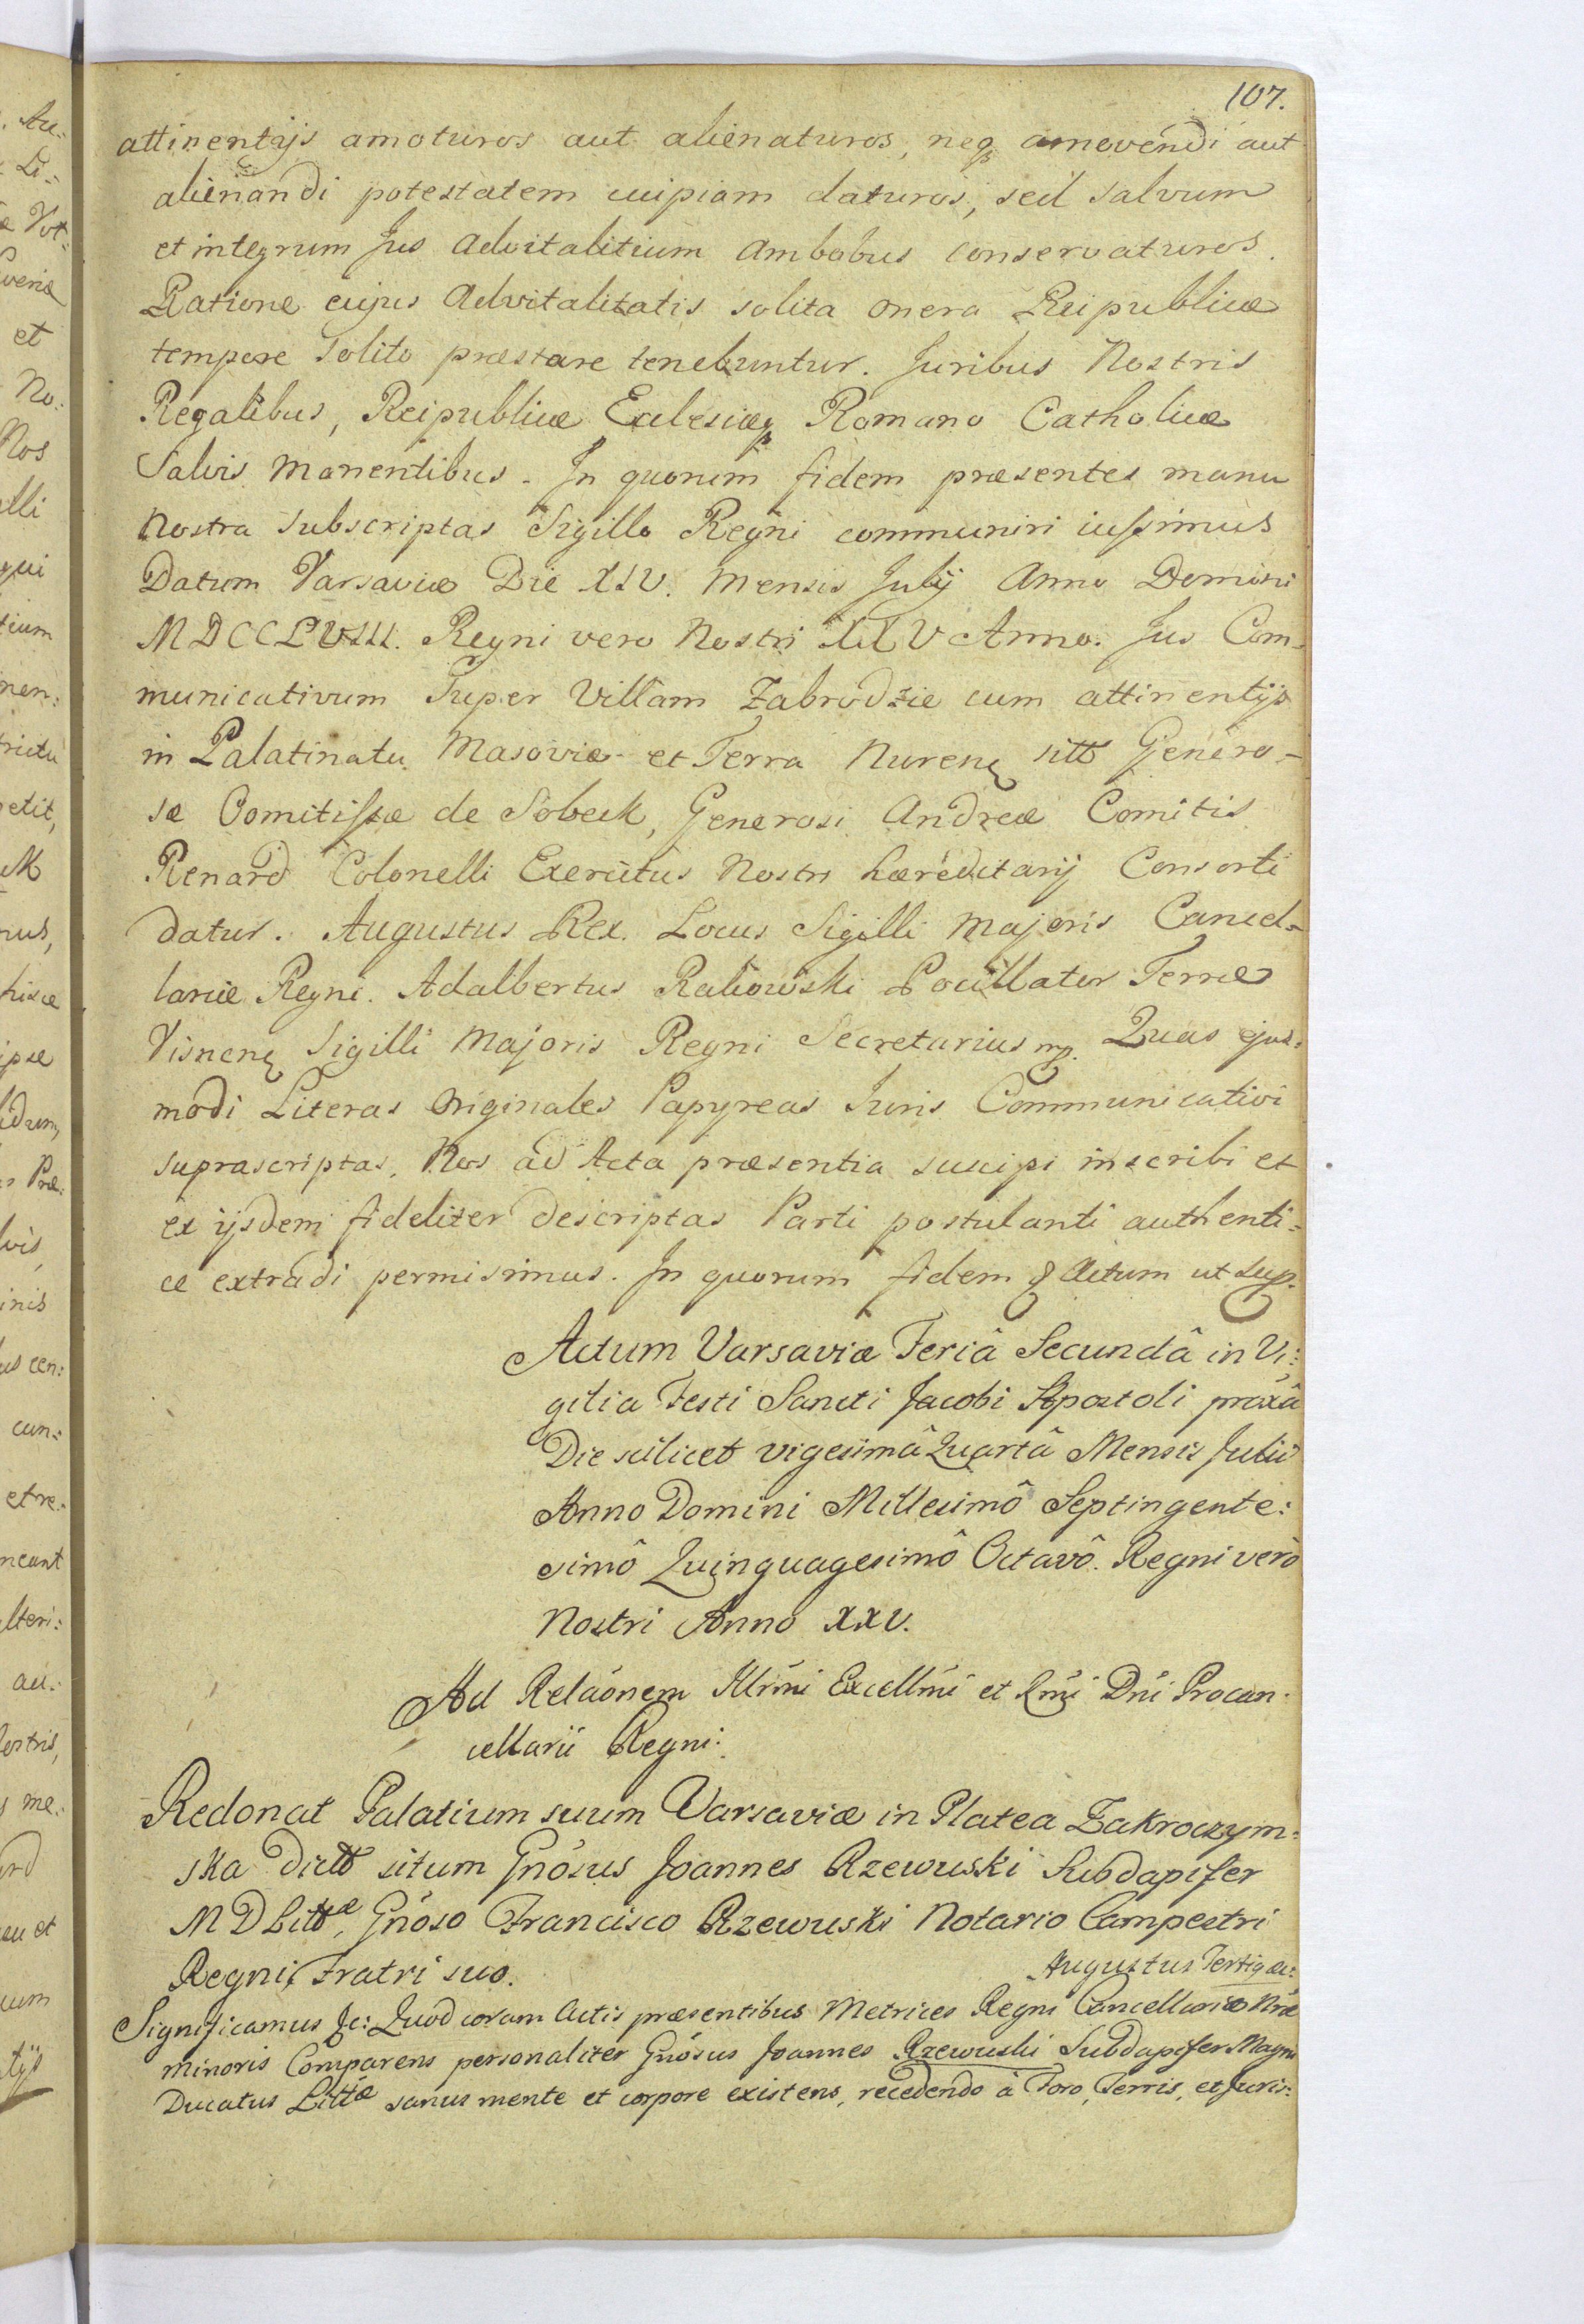 107.
attinentijs amoturos aut alienaturos, neq amovendi aut
alienandi potestatem cuipiam daturos, sed salvum
et integrum Jus Advitalitium Ambobus conservaturos.
Ratione cujus Advitalitatis solita onera Reipublicæ
tempore Solito præstare tenebuntur. Juribus Nostris
Regalibus, Reipublicæ Ecclesiæq Romano Catholicæ
Salvis Manentibus. In quorum fidem præsentes manu
Nostra Subscriptas Sigillo Regni communiri iussimus
Datum Varsaviæ Die XIV. Mensis Julij Anno Domini
MDCCLVIII. Regni vero Nostri XXV Anno. Jus Com-
municativum Super Villam Zabrodzie cum attinentijs
in Palatinatu Masoviæ et Terra Nurenę sitt Genero-
sæ Comitissæ de Sobeck, Generosi Andreæ Comitis
Renard Colonelli Exercitus Nostri hæreditarij Consorti
datur. Augustus Rex. Locus Sigilli Majoris Cancel-
lariæ Regni. Adalbertus Rakowski Pocillator Terræ
Visnenę Sigilli Majoris Regni Secretarius mp. Quas ejus-
modi Literas Originales Papyreas Juris Communicativi
suprascriptas, Nos ad Acta præsentia suscipi inscribi et
ex ijsdem fideliter descriptas Parti postulanti authenti=
ce extradi permisimus. In quorum fidem & Actum ut sup.
Actum Varsaviæ Feriâ Secundâ in Vi:
gilia Festi Sancti Jacobi Apostoli proxâ
Die scilicet vigesimâ Quartâ Mensis Julii
Anno Domini Millesimô Septingente:
simô Quinquagesimô Octavô. Regni verò
Nostri Anno XXV.
Ad Relaõnem Illrmi Excellmi et Rmi Dni Procan-
cellarii Regni:
Redonat Palatium suum Varsaviæ in Platea Zakroczym=
ska dict situm Gnosus Joannes Rzewuski Subdapifer
MDLittæ, Gnoso Francisco Rzewuski Notario Campestri
Regni, Fratri suo.
Augustus Tertig &:
Significamus &c: Quod coram Actis præsentibus Metrices Regni Cancellariæ Nræ
minoris Comparens personaliter Gnosus Joannes Rzewuski Subdapifer Magni
Ducatus Littæ sanus mente et corpore existens, recedendo à Foro, Terris, et Juris: